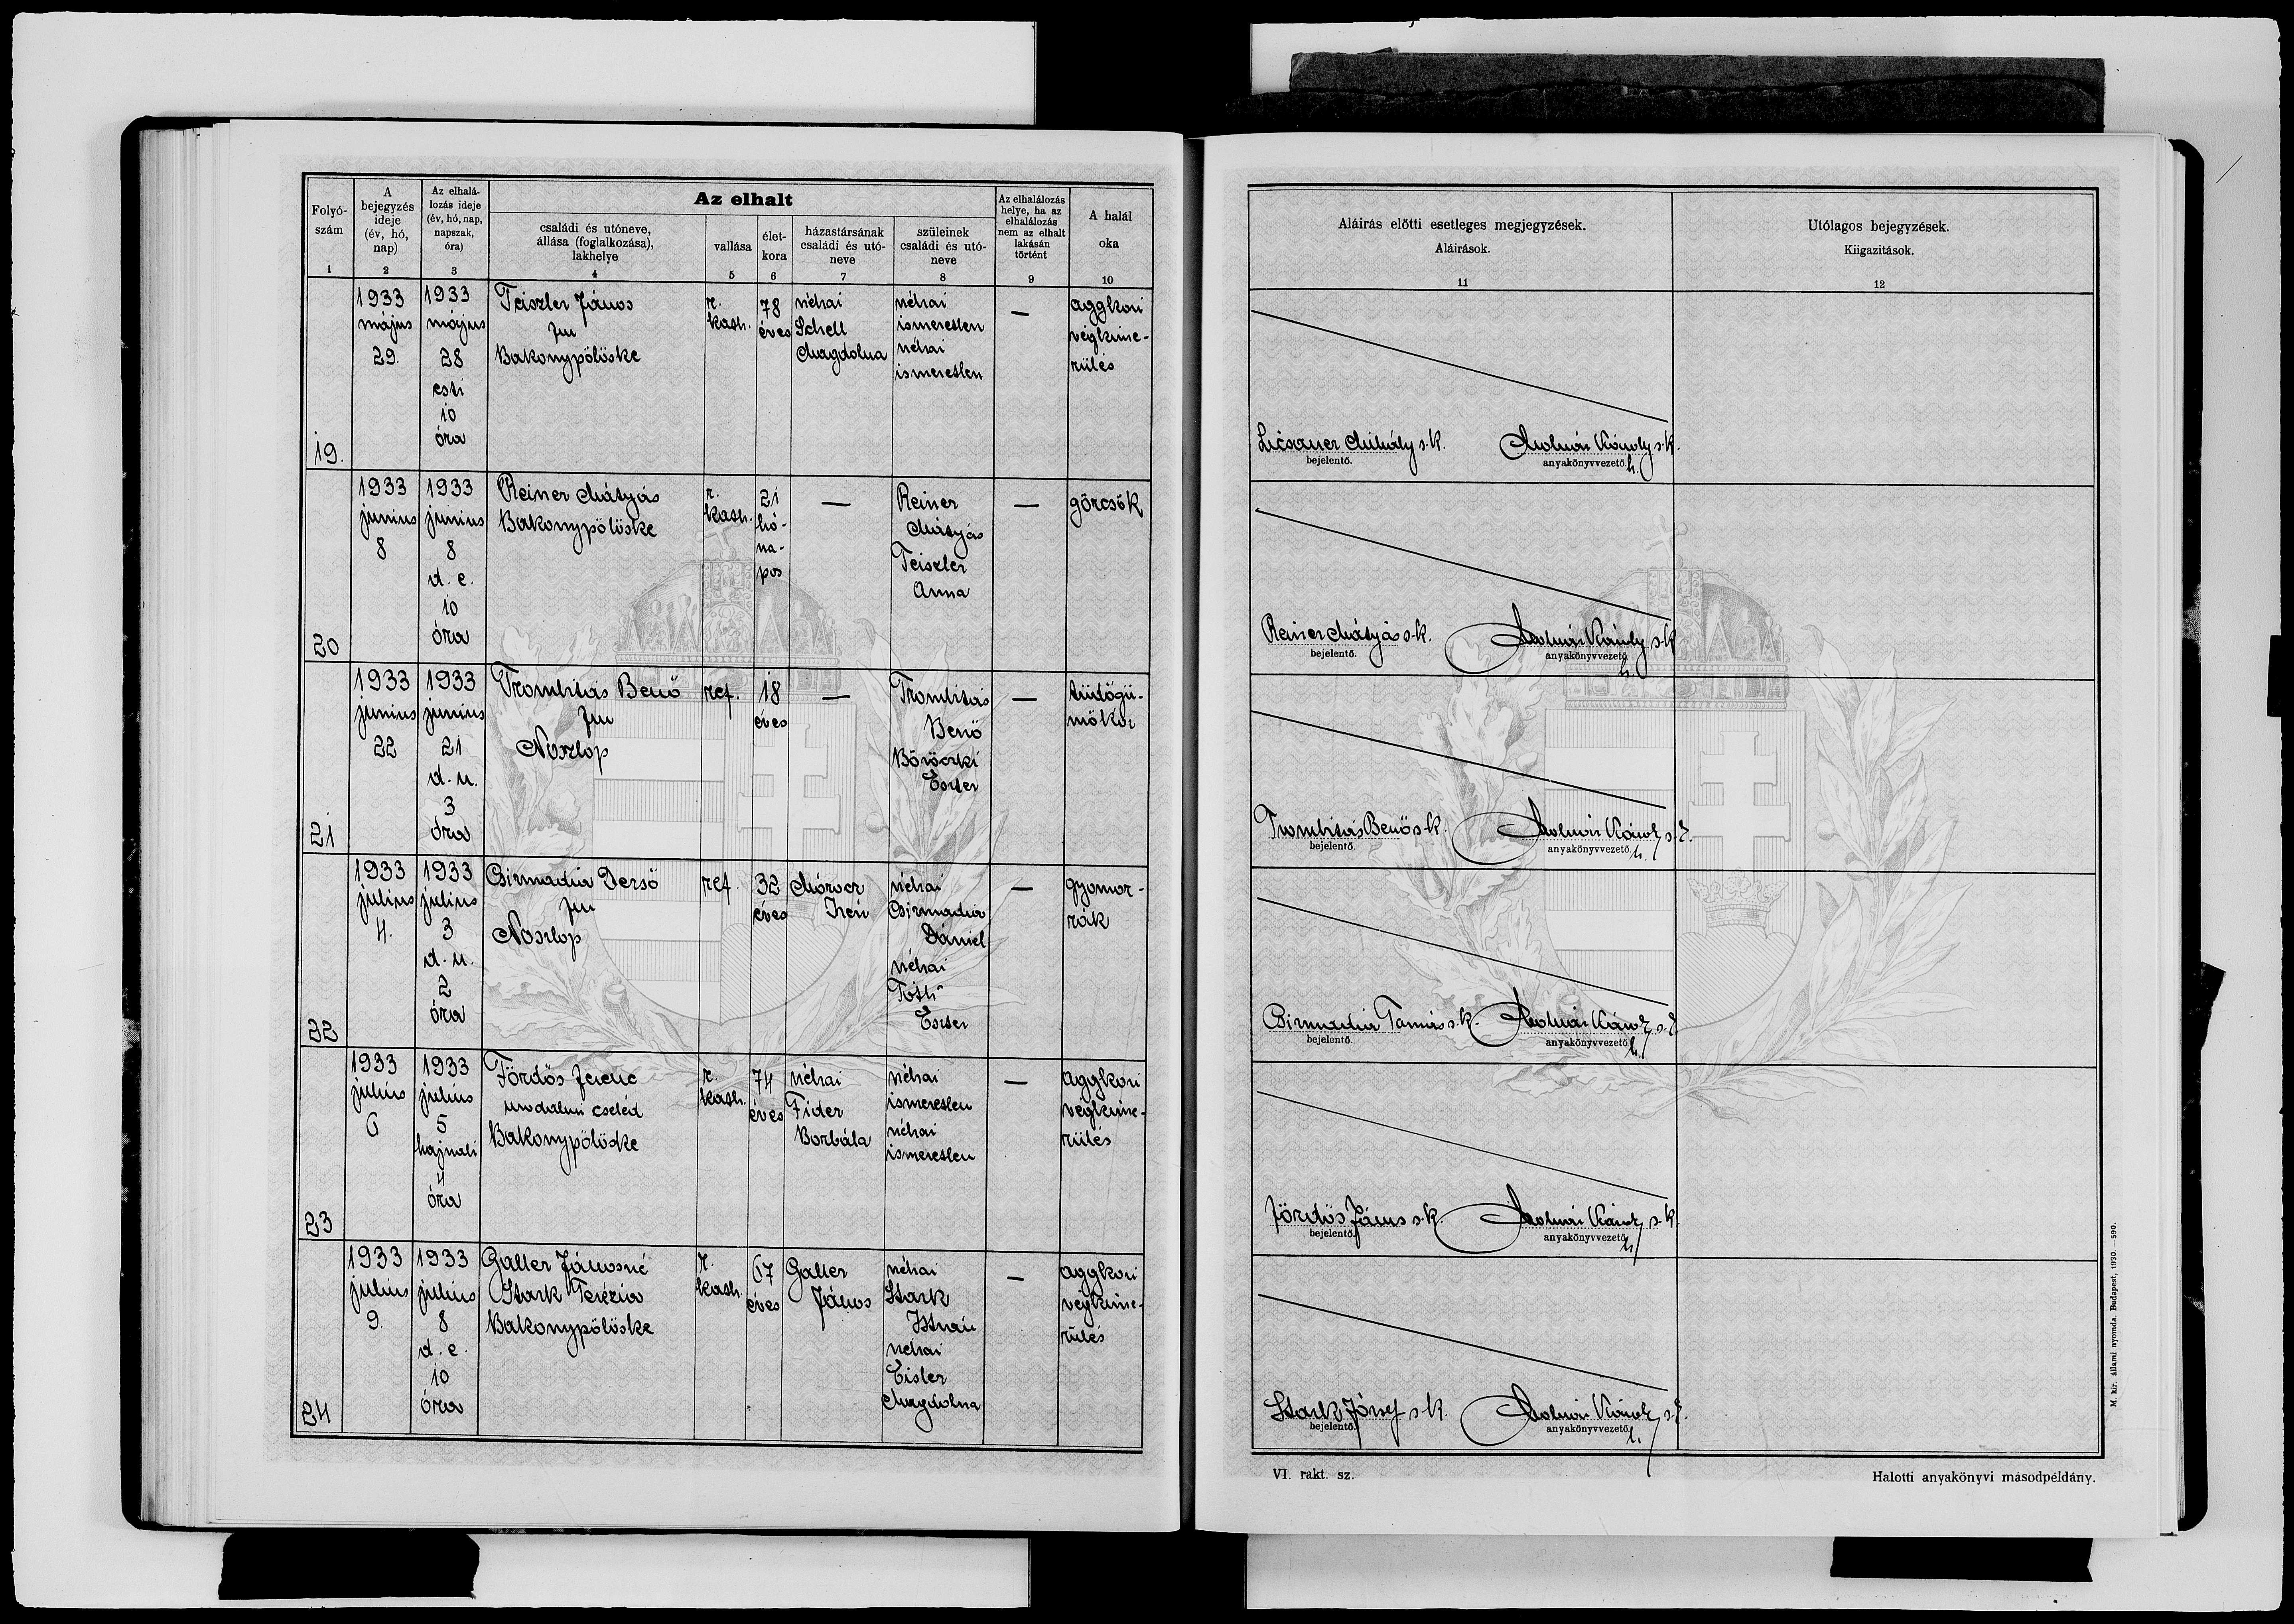 Folyó-
szám
1
A
bejegyzés
ideje
(év, hó,
nap)
2
Az elhalá-
lozás ideje
(év, hó, nap,
napszak,
óra)
3
Az elhalt
családi és utóneve,
állása (foglalkozása),
lakhelye
4
vallása
5
élet-
kora
6
házastársának
családi és utó-
neve
7
szüleinek
családi és utó-
neve
8
Az elhalálozás
helye, ha az
elhalálozás
nem az elhalt
lakásán
történt
9
A halál
oka
10
Aláirás előtti esetleges megjegyzések.
Aláirások.
11
Utólagos bejegyzések.
Kiigazitások.
12
19.
1933
május
29.
1933
május
28
esti
10
óra
Teiszler János
Bakonypölöske
r.
kath.
78
éves
néhai
Schell
Magdolna
néhai
ismeretlen
néhai
ismeretlen
—
aggkori
végkime-
rülés
Mihály s.k.
bejelentő.
Molnár Károly s.k.
anyakönyvvezető h.
20
1933
junius
8
1933
junius
8
d. e.
10
óra
Reiner Mátyás
Bakonypölöske
r.
kath.
21
hó-
na-
pos
—
Reiner
Mátyás
Teiszler
Anna
—
görcsök
Reiner Mátyás s.k.
bejelentő.
Molnár Károly s.k.
anyakönyvvezető
h.
21
1933
junius
22
1933
junius
21
d. u.
3
óra
Trombitás Benő
Noszlop
ref.
18
éves
—
Trombitás
Benő
Böröczki
Eszter
—
tüdőgü-
mőkór
Trombitás Benő s.k.
bejelentő.
Molnár Károly s.k.
anyakönyvvezető
h.
22
1933
julius
4.
1933
julius
3
d. u.
2
óra
Csizmadia Dezső
Noszlop
ref.
32
éves
Mórocz
Irén
néhai
Csizmadia
Dániel
néhai
Tóth
Eszter
—
gyomor-
rák
Csizmadia Tamás s.k.
bejelentő.
Molnár Károly s.k.
anyakönyvvezető
h.
23
1933
julius
6
1933
julius
5
hajnali
4
óra
Fördős Ferenc
uradalmi cseléd
Bakonypölöske
r.
kath.
74
éves
néhai
Fider
Borbála
néhai
ismeretlen
néhai
ismeretlen
—
aggkori
végkime-
rülés
Fördős János s.k.
bejelentő.
Molnár Károly s.k.
anyakönyvvezető
h.
24
1933
julius
9.
1933
julius
8
d. e.
10
óra
Galler Jánosné
Stark Terézia
Bakonypölöske
r.
kath.
67
éves
Galler
János
néhai
Stark
István
néhai
Eisler
Magdolna
—
aggkori
végkime-
rülés
Stark József s.k.
bejelentő.
Molnár Károly s.k.
anyakönyvvezető
h.
VI. rakt. sz.
Halotti anyakönyvi másodpéldány.
M. kir. állami nyomda. Budapest, 1930. — 590.